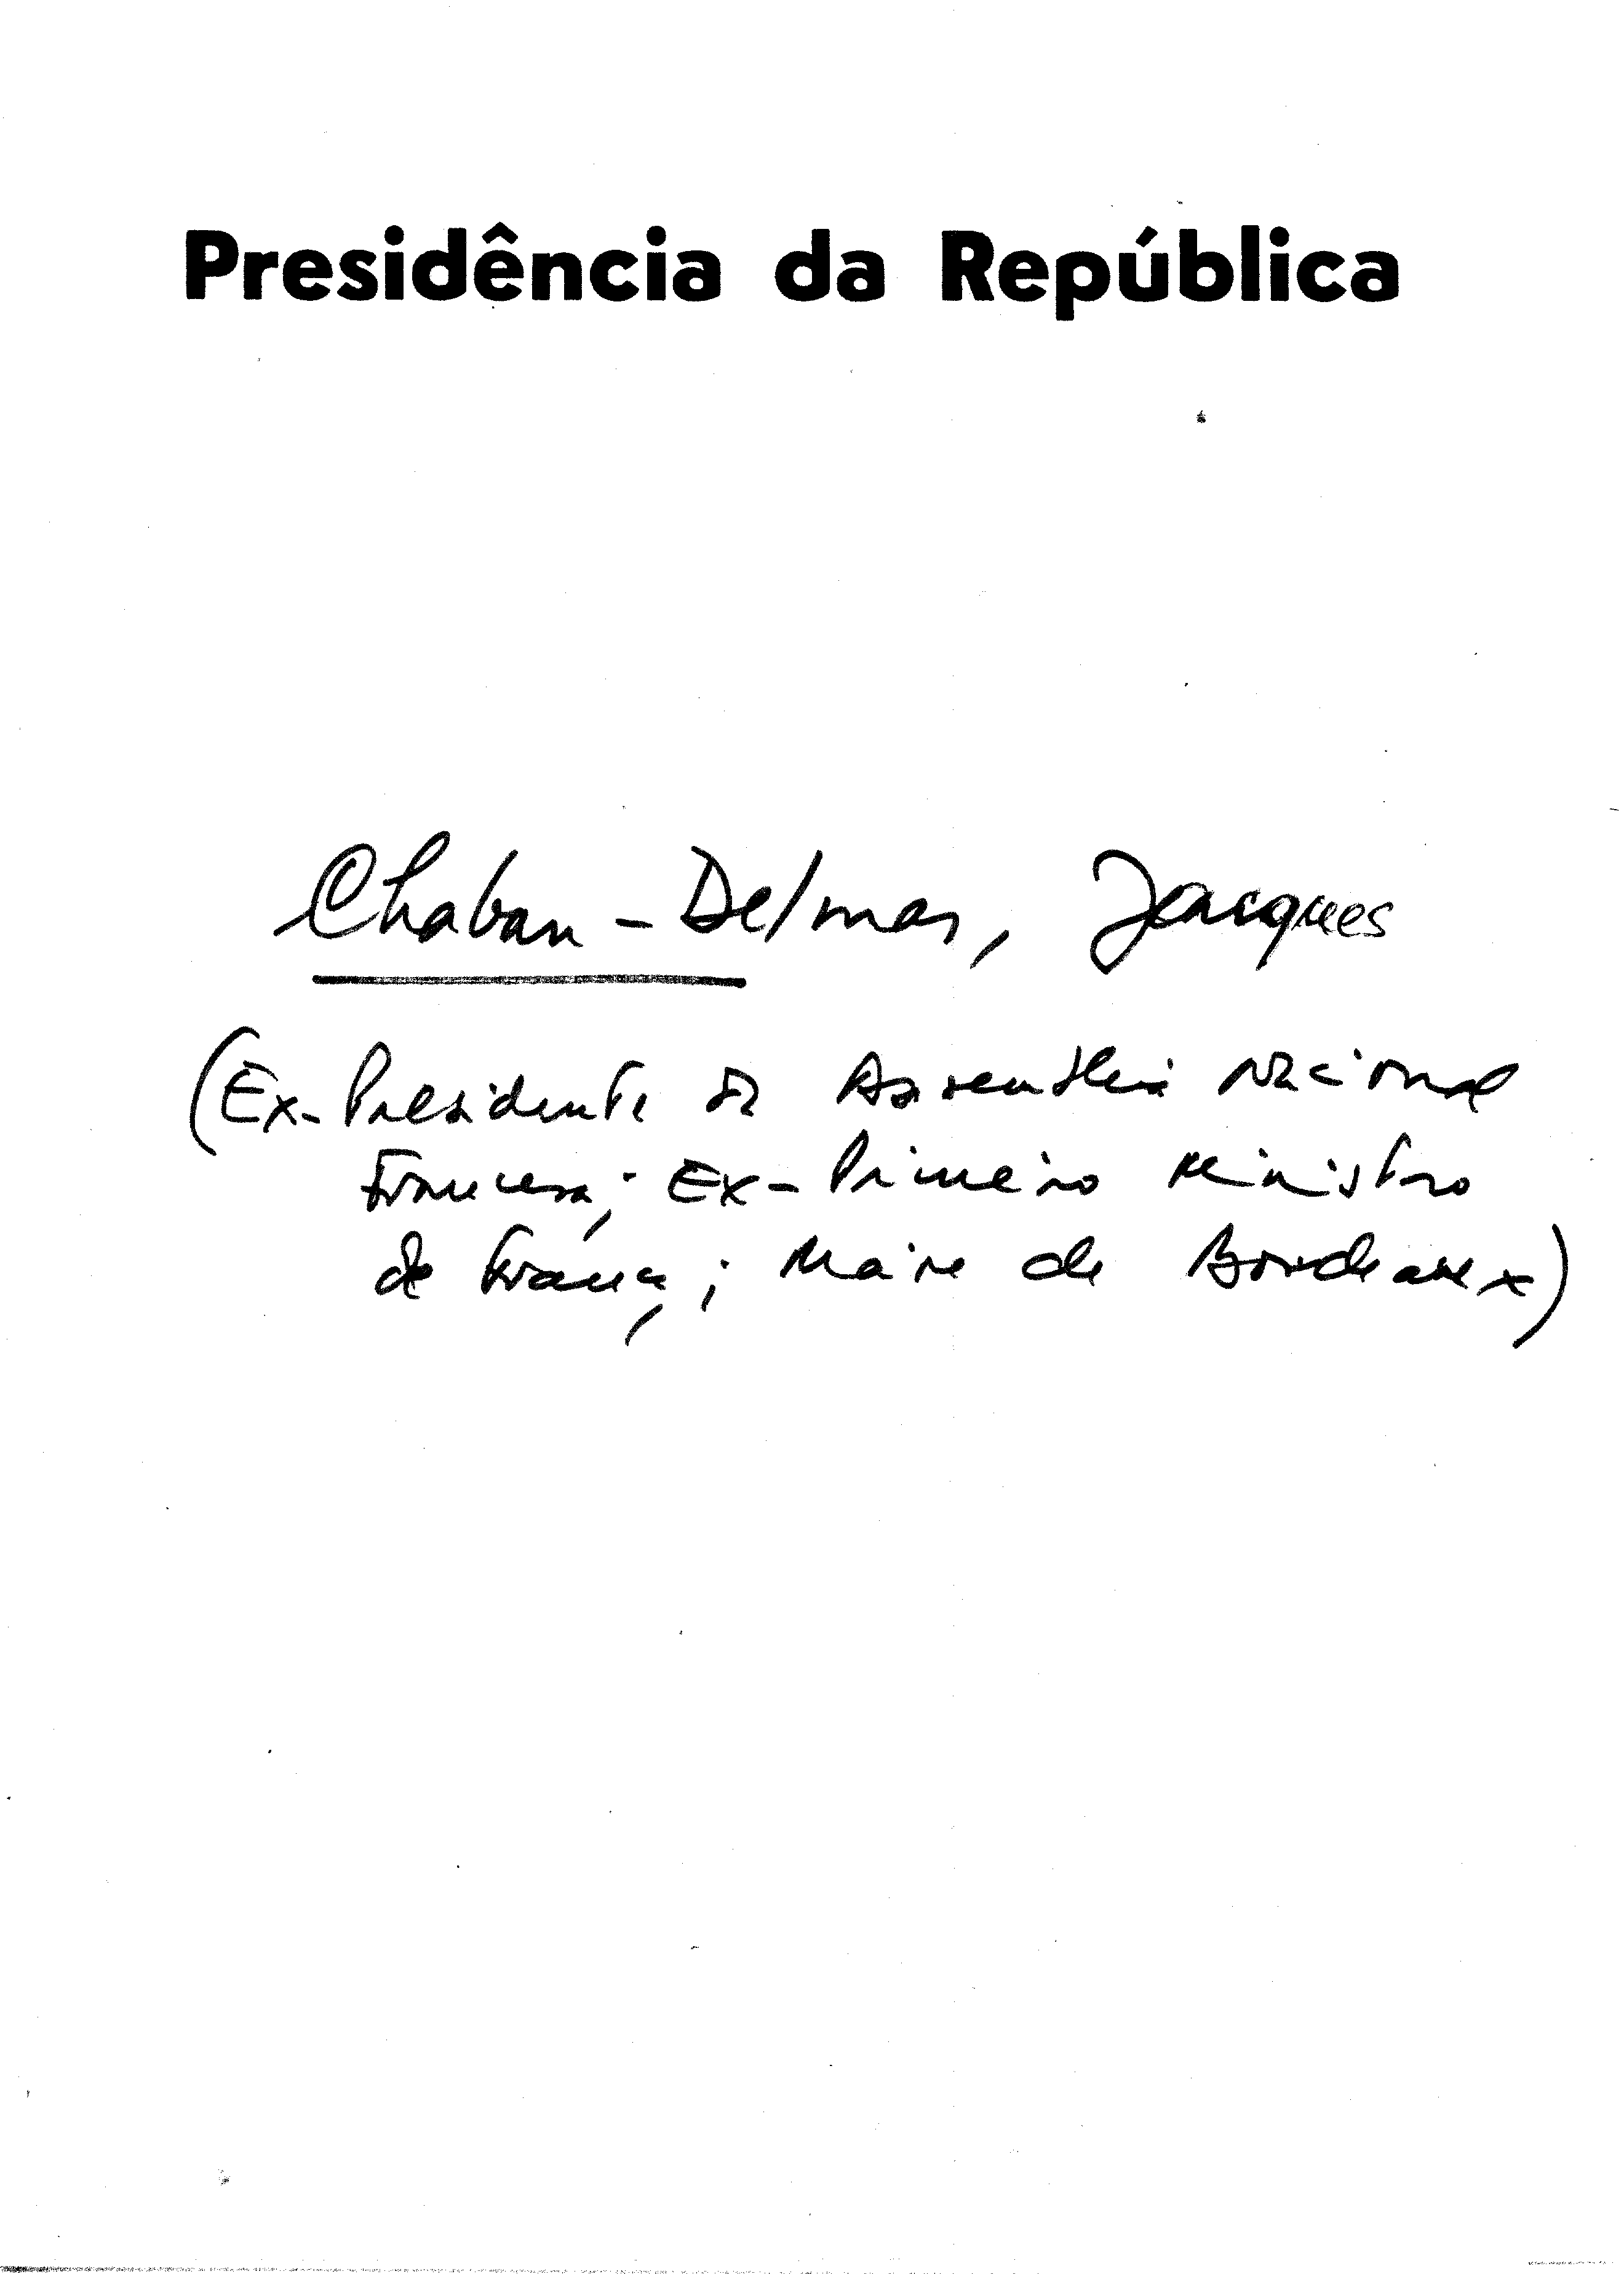 Presidência da República
Chaban-Delmas, Jacques
(Ex-Presidente da Assembleia Nacional
Francesa; Ex-Primeiro Ministro
de França; Maire de Bordeaux)